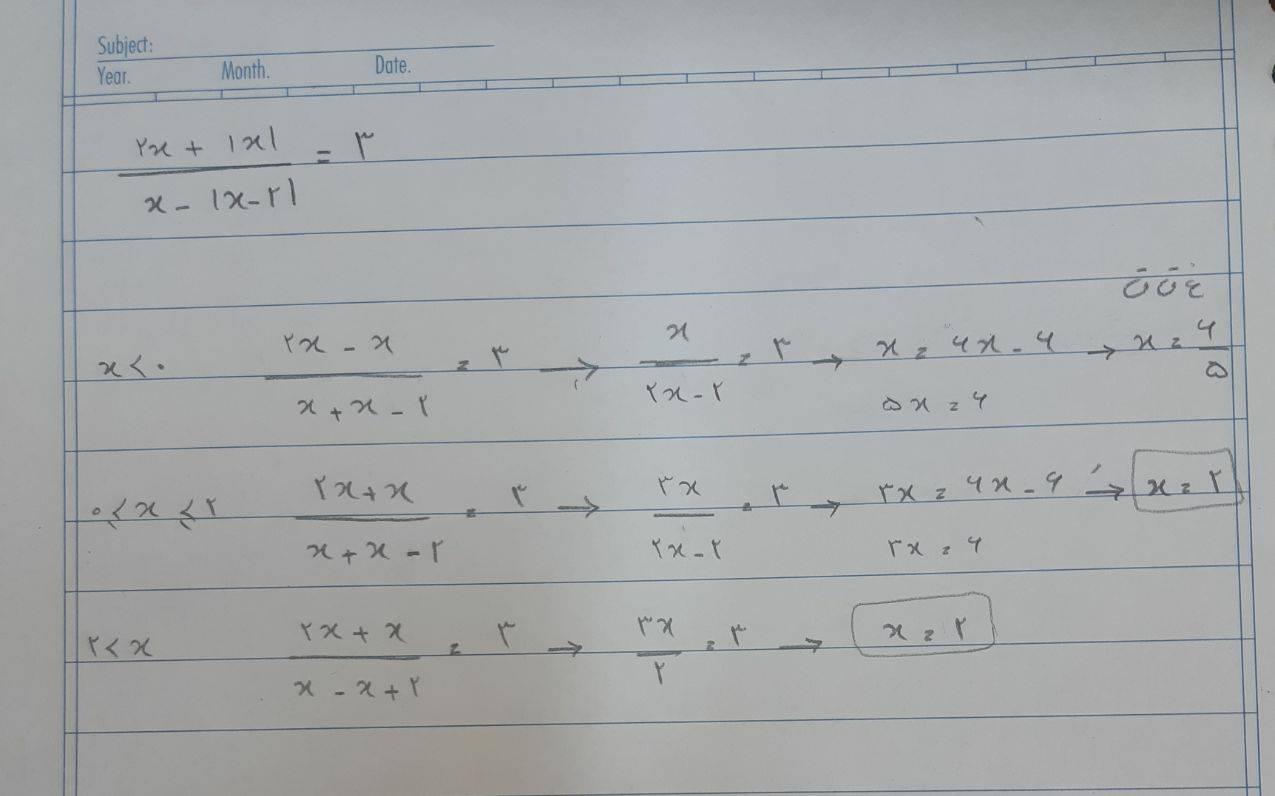 Subject:
Year. Month. Date.
(۲x + |x|) / (x - |x-۲|) = ۳
غ ق ق
x < ۰ (۲x - x) / (x + x - ۲) = ۳ → x / (۲x-۲) = ۳ → x = ۶x - ۶ → x = ۶/۵
۵x = ۶
۰ ≤ x ≤ ۲ (۲x+x) / (x + x - ۲) = ۳ → ۳x / (۲x-۲) = ۳ → ۳x = ۶x - ۶ → x = ۲
۳x = ۶
۲ < x (۲x + x) / (x - x + ۲) = ۳ → ۳x / ۲ = ۳ → x = ۲